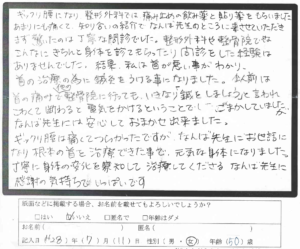 ギックリ腰になり整形外科では痛み止めの飲み薬と貼り薬をもらいましたが
あまりにも痛くて知り合いの紹介でなんば先生のところに寄せていただき
ます。驚いたのは丁寧な問診でした。整形外科も整骨院でも
こんなにきちんと身体を診てもらったり問診をした経験は
ありませんでした。結果、私は首が悪い事がわかり、
首の治療の為に鍼をうける事になりました。以前は
首の痛みで整骨院に行っても、いきなり鍼をしましょうと言われ
こわくて断わると電気をかけるということで ごまかしていましたが、
なんば先生には安心しておまかせ出来ました。
ギックリ腰は痛くてつらかったですが なんば先生にお世話に
なり根本の首を治療できた事で、元気な身体になりました。
丁寧に身体の変化を察知して治療してくださる なんば先生に
感謝の気持ちでいっぱいです
紙面などに掲載する場合、お名前を載せてもよろしいでしょうか?
□はい ☑いいえ □匿名で □年齢はダメ
お名前
記入日 H28年(7)月(11)日 性別(男・女) 年齢(50)歳